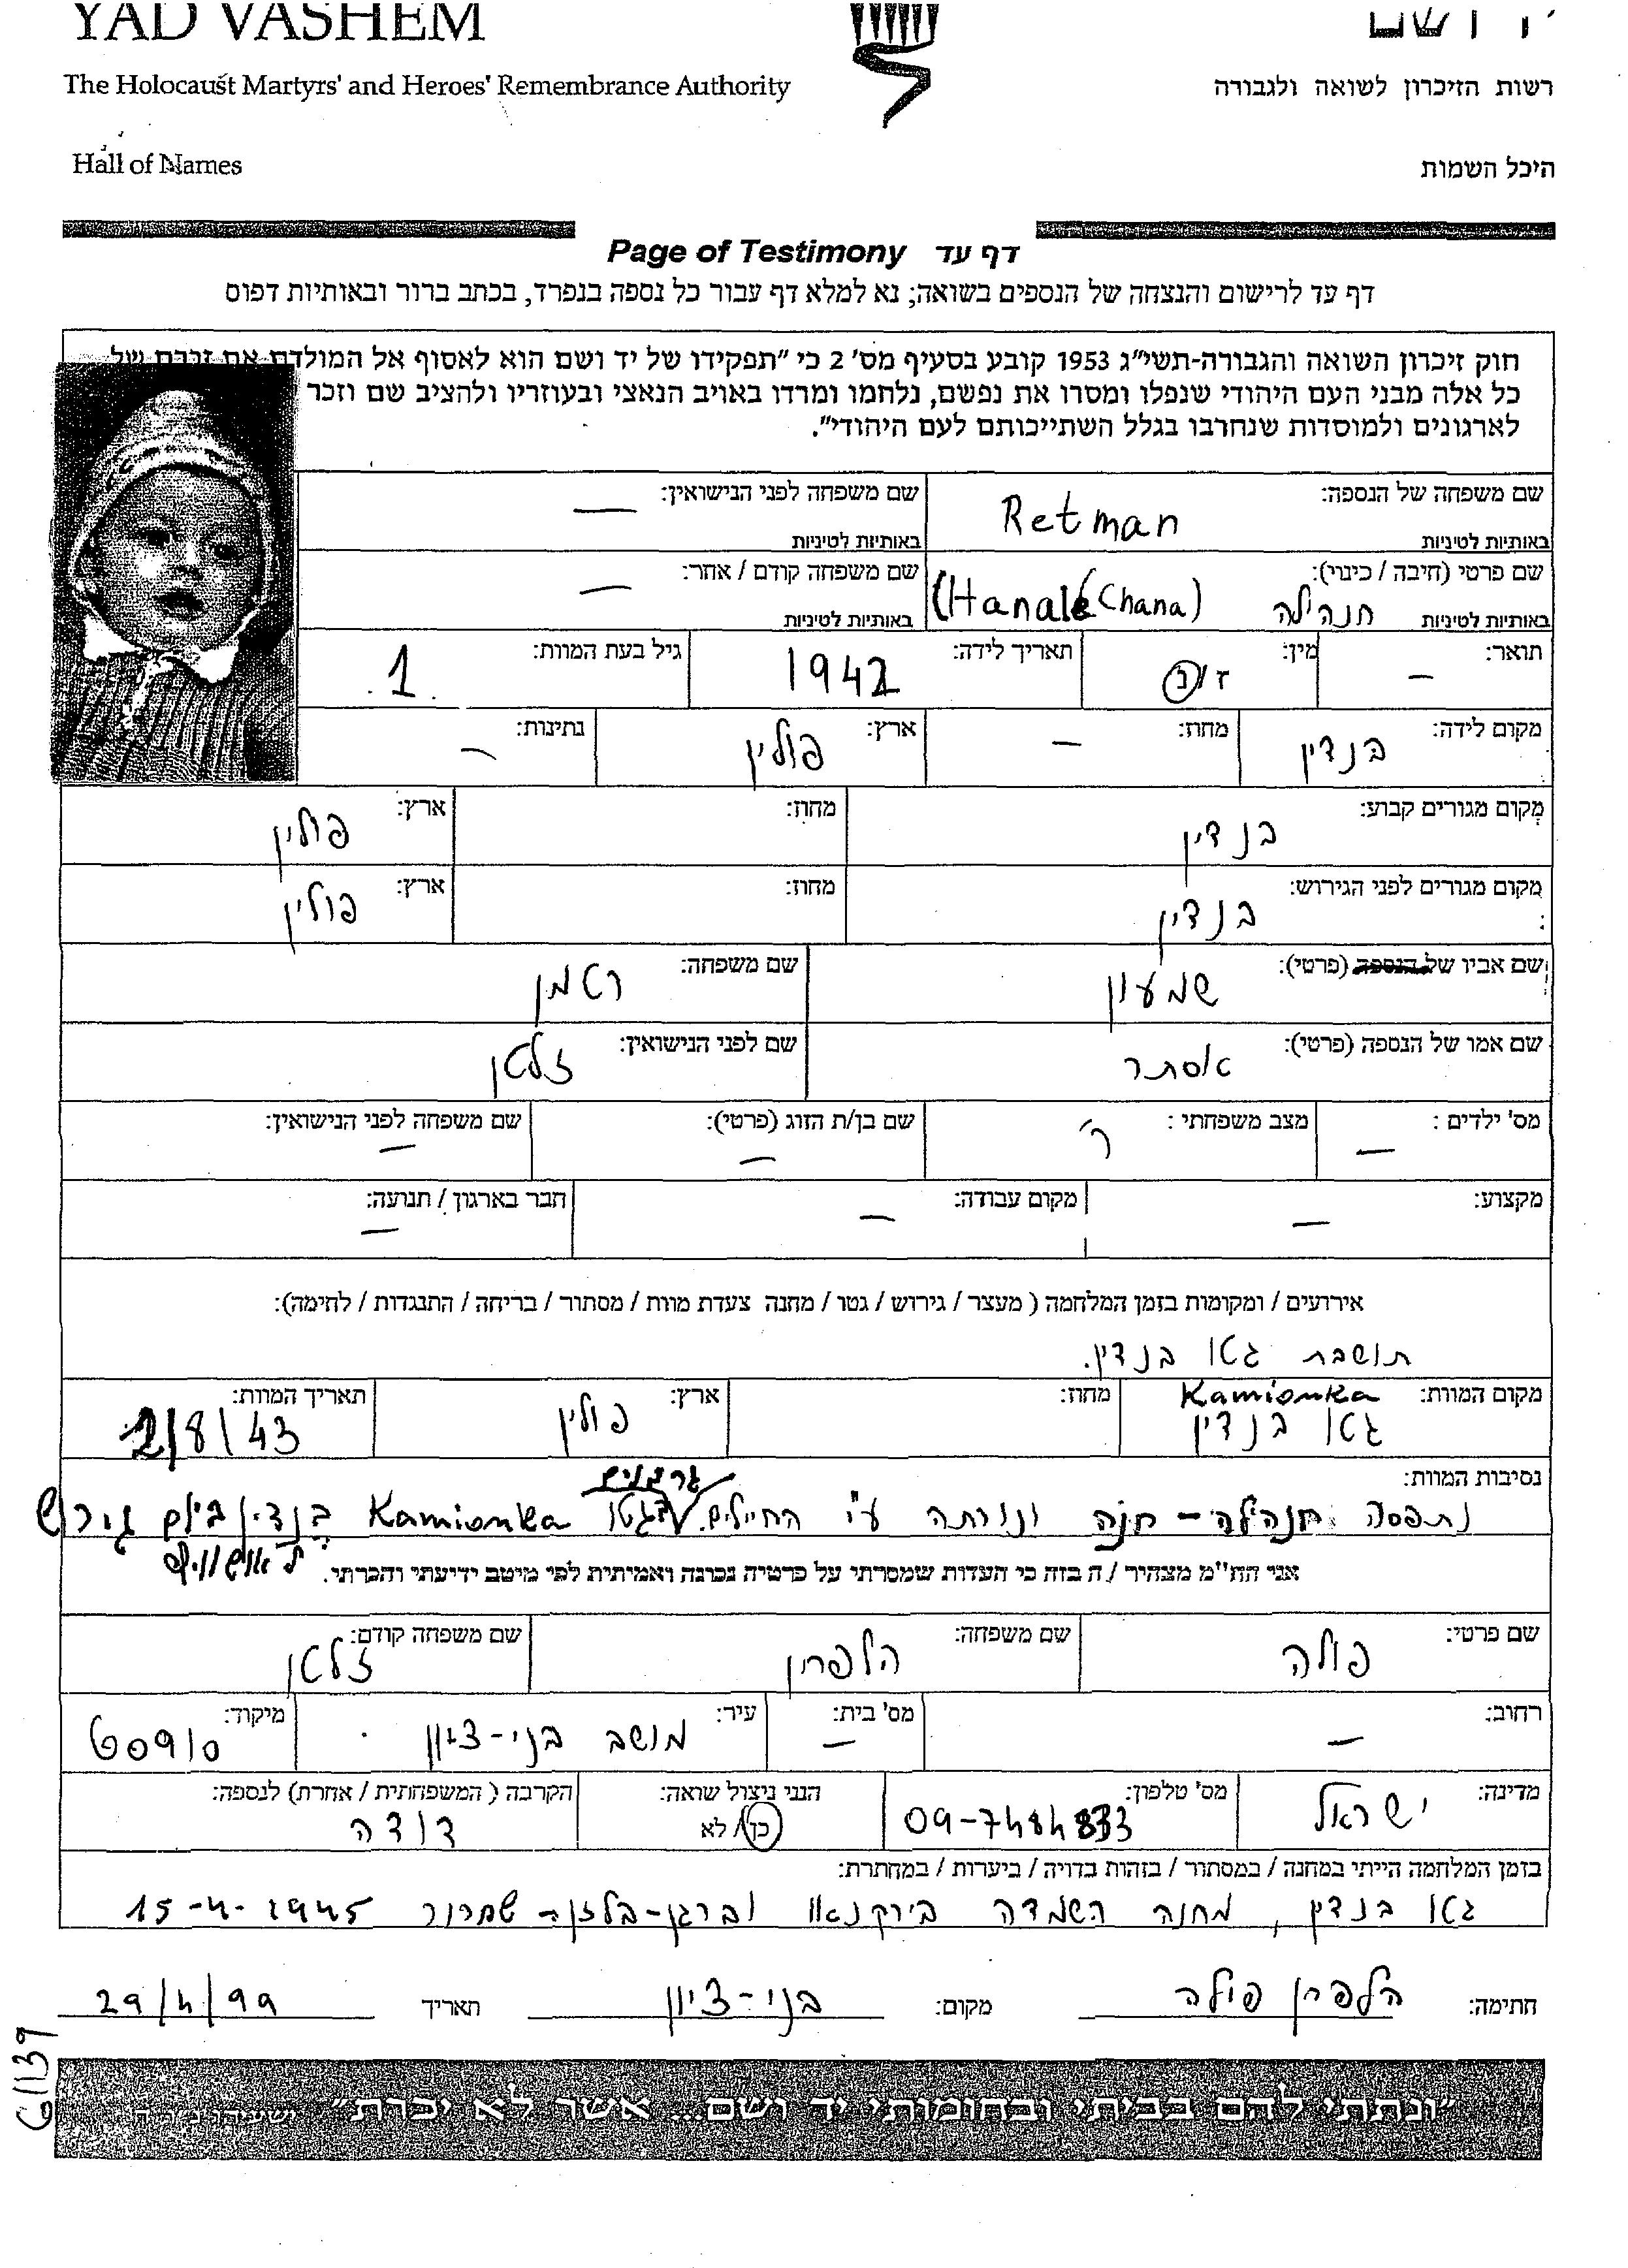 YAD VASHEM
The Holocaust Martyrs' and Heroes' Remembrance Authority
רשות הזיכרון לשואה ולגבורה
Hall of Names
היכל השמות
Page of Testimony דף עד
דף עד לרישום והנצחה של הנספים בשואה; נא למלא דף עבור כל נספה בנפרד, בכתב ברור ובאותיות דפוס
חוק זיכרון השואה והגבורה-תשי"ג 1953 קובע בסעיף מס' 2 כי "תפקידו של יד ושם הוא לאסוף אל המולדת את זכרם של
כל אלה מבני העם היהודי שנפלו ומסרו את נפשם, נלחמו ומרדו באויב הנאצי ובעוזריו ולהציב שם וזכר
לארגונים ולמוסדות שנחרבו בגלל השתייכותם לעם היהודי".
שם משפחה של הנספה: Retman שם משפחה לפני הנישואין: —
באותיות לטיניות באותיות לטיניות
שם פרטי (חיבה / כינוי): חנה'לה (Hanale (Chana) שם משפחה קודם / אחר: —
באותיות לטיניות באותיות לטיניות
תואר: — מין: ז / נ תאריך לידה: 1942 גיל בעת המוות: 1
מקום לידה: בנדין מחוז: — ארץ: פולין נתינות: —
מקום מגורים קבוע: בנדין מחוז: ארץ: פולין
מקום מגורים לפני הגירוש: בנדין מחוז: ארץ: פולין
שם אביו של הנספה (פרטי): שמעון שם משפחה: רטמן
שם אמו של הנספה (פרטי): אסתר שם לפני הנישואין: זלטן
מס' ילדים: — מצב משפחתי: ר' שם בן/ת הזוג (פרטי): — שם משפחה לפני הנישואין: —
מקצוע: — מקום עבודה: — חבר בארגון / תנועה: —
אירועים / ומקומות בזמן המלחמה ( מעצר / גירוש / גטו / מחנה צעדת מוות / מסתור / בריחה / התנגדות / לחימה):
תושבת גטו בנדין.
מקום המוות: Kamionka גטו בנדין מחוז: ארץ: פולין תאריך המוות: 2/8/43
נסיבות המוות:
גרמנים
נתפסה חנה'לה - חנה ונורתה ע"י החיילים בגטו Kamionka בנדין ביום גירוש
לאושוויץ
אני הח"מ מצהיר / ה בזה כי העדות שמסרתי על פרטיה נכונה ואמיתית לפי מיטב ידיעתי והכרתי.
שם פרטי: פולה שם משפחה: הלפרין שם משפחה קודם: זלטן
רחוב: — מס' בית: — עיר: מושב בני-ציון מיקוד: 60910
מדינה: ישראל מס' טלפון: 09-7484833 הנני ניצול שואה: כן / לא הקרבה ( המשפחתית / אחרת) לנספה: דודה
בזמן המלחמה הייתי במחנה / במסתור / בזהות בדויה / ביערות / במחתרת:
גטו בנדין, מחנה השמדה בירקנאו וברגן-בלזן - שחרור 15-4-1945
חתימה: הלפרין פולה מקום: בני-ציון תאריך 29/4/99
6/139
"ונתתי להם בביתי ובחומותי יד ושם... אשר לא יכרת"